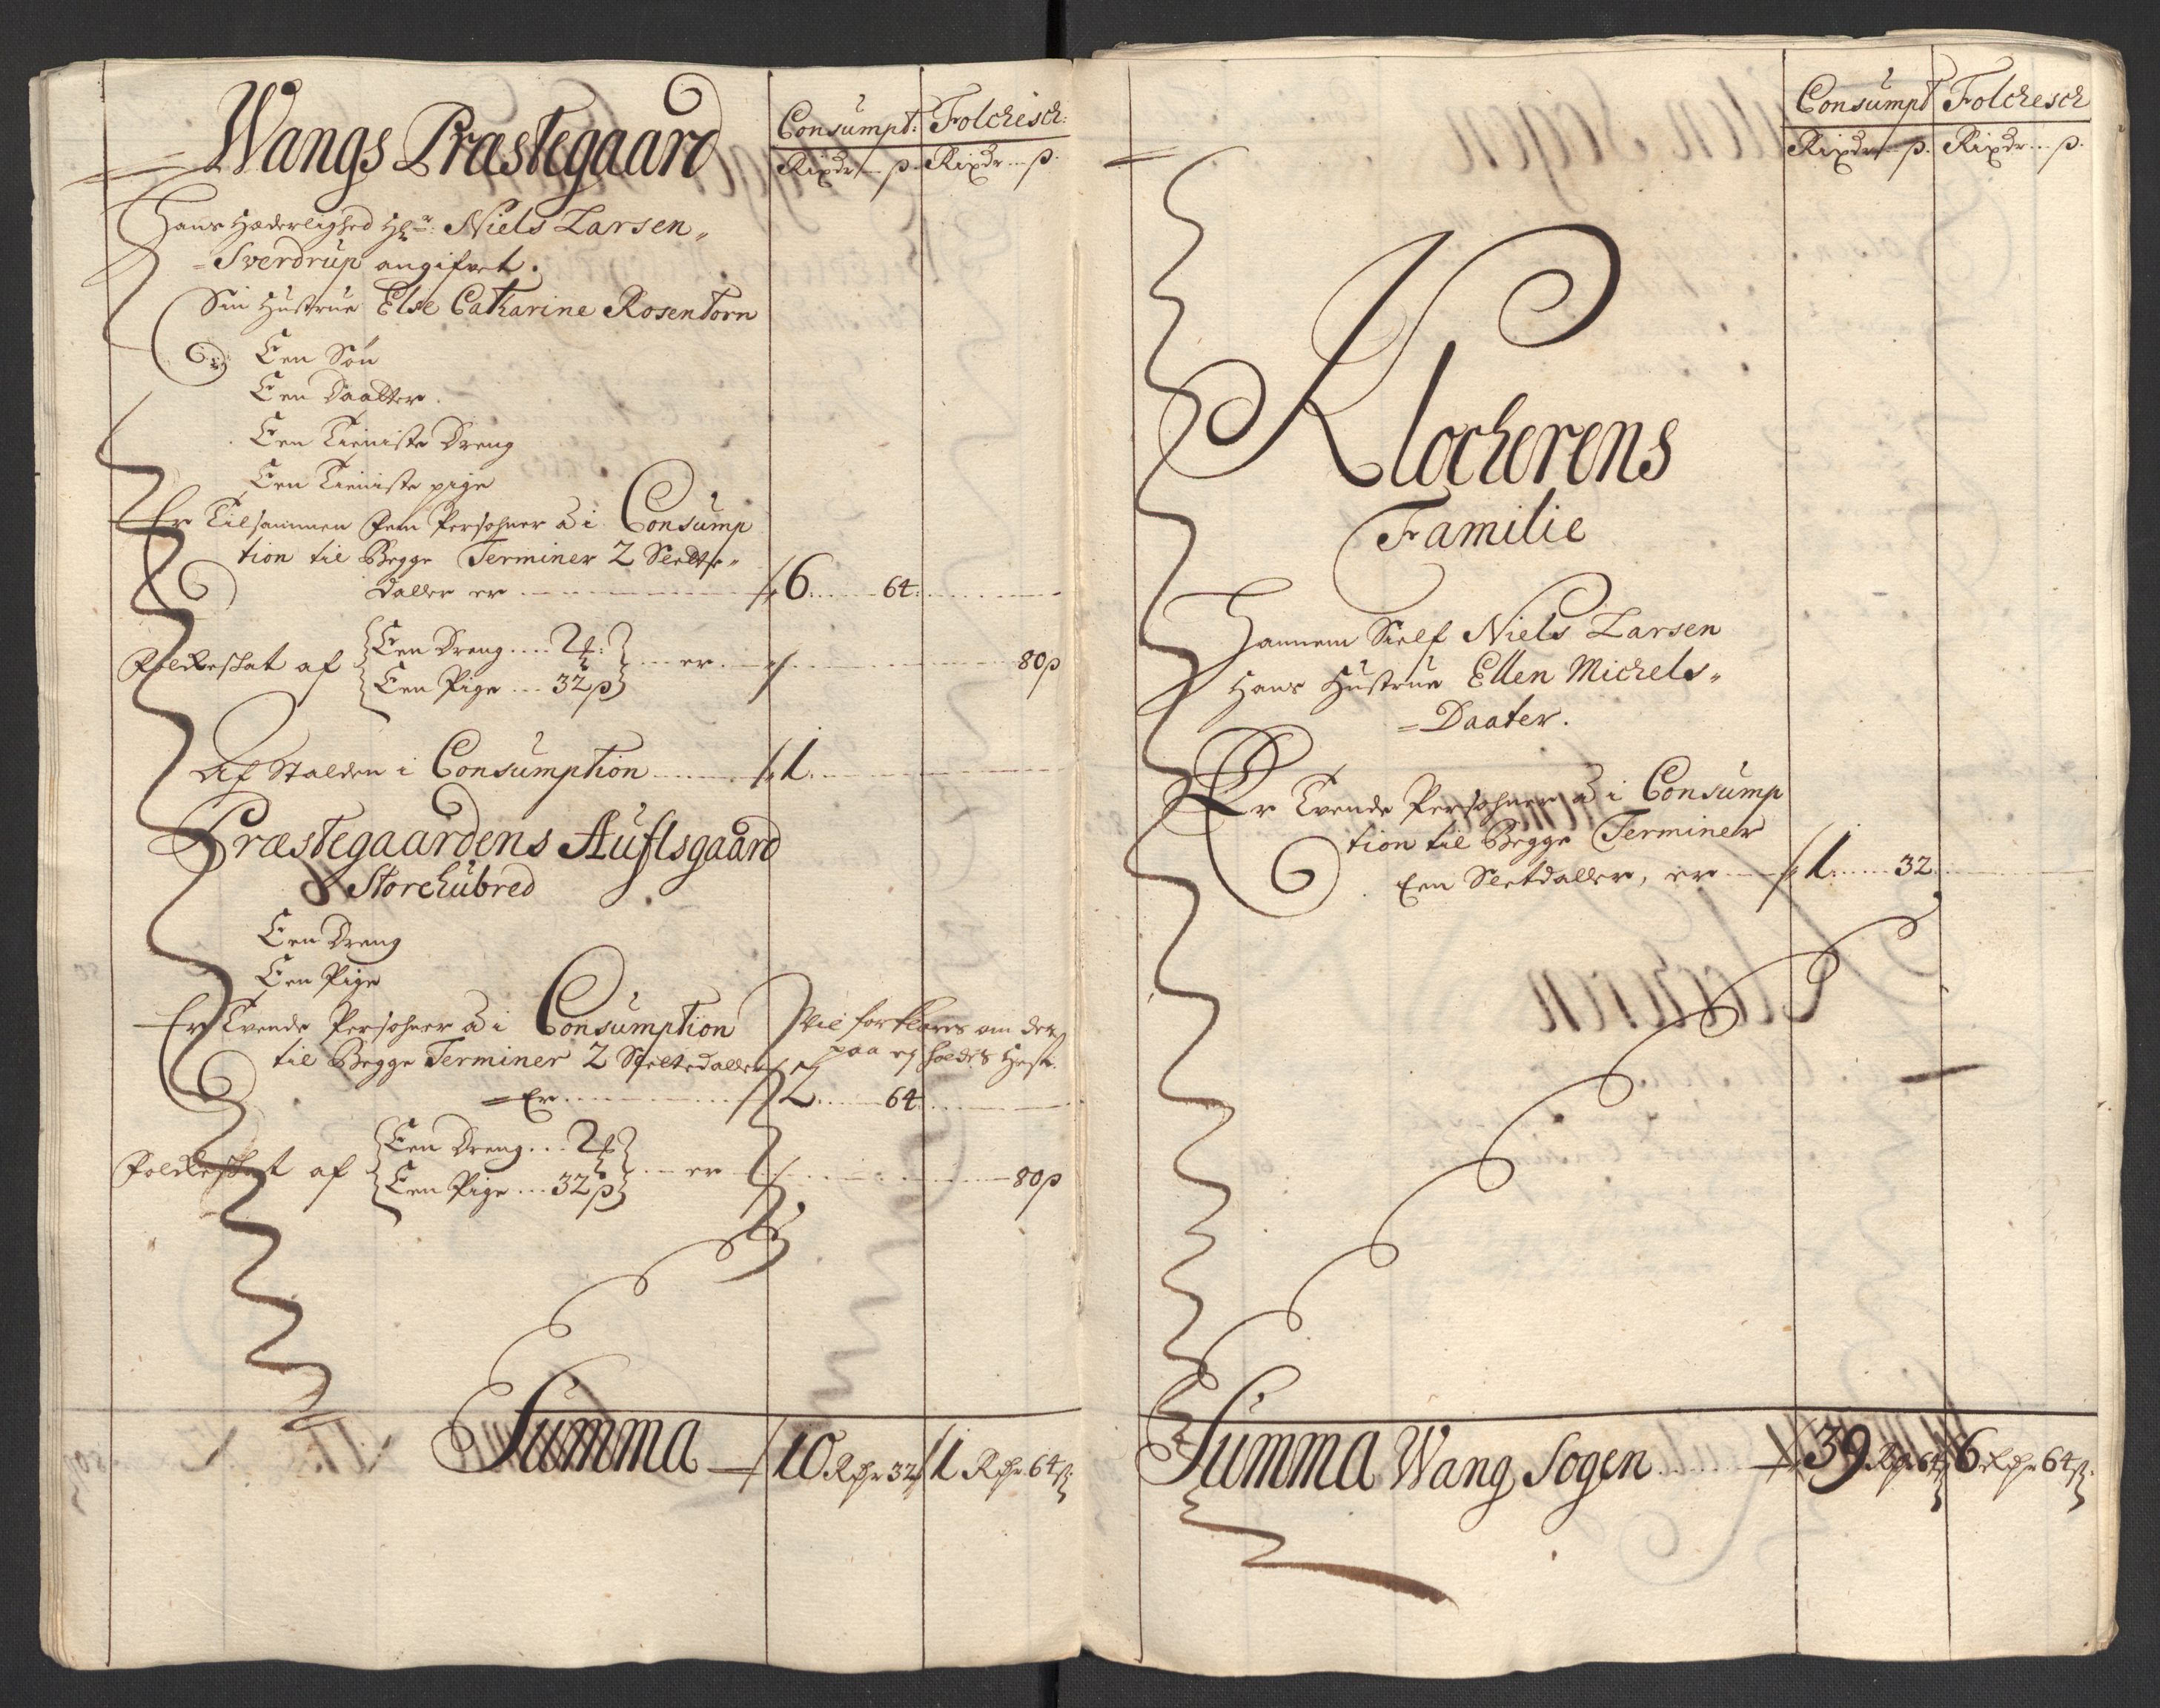 Wangs Præstegaard
Consumpt: Folchesch:
Rixdr ... ß. Rixdr ... ß.
Hans Hæderlighed Hr: Niels Larsen
Sverdrup angifvet.
Sin Hustrue Else Catharine Rosentorn
Een Søn
Een Daatter.
Een Tieniste Dreng
Een Tieniste pige
Er Tilsammen Fem Persohner à i Consump
tion til Begge Terminer 2 Slette
daller er 6 64
Folkeskat af Een Dreng .... ½ er
Een Pige ... 32 ß 80 ß
Af Stalden i Consumption 1
Præstegaardens Auflsgaard
Storchubred
Een Dreng
Een Pige
Er Tvende Persohner à i Consumption
til Begge Terminer 2 Slettedaller
Vil forklares om der
paa ej holdes Hest.
Er 2 64
Folkeskat af Een Dreng ... er
Een Pige ... 32 ß 80 ß
Summa 10 Rdr 32 1 Rdr 64 ß
Consumpt Folchesch
Rixdr ... ß. Rixdr ... ß.
Klocherens
Familie
Hannem Sielf Niels Larsen
Hans Hustrue Ellen Michels
=Daater.
Er Tvende Persohner à i Consump
tion til Begge Terminer
Een Sletdaller, er 1 32
Summa Wang Sogen 39 Rdr 64 6 Rdr 64 ß